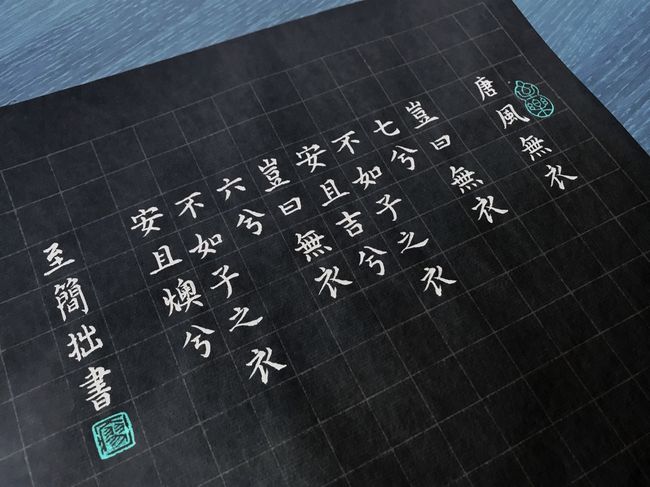 唐風無衣
豈曰無衣
七兮
不如子之衣
安且吉兮
豈曰無衣
六兮
不如子之衣
安且燠兮
至簡拙書